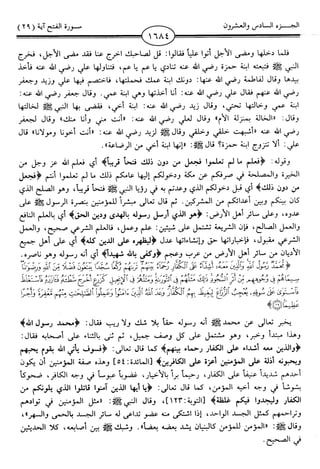 الجزء السادس والعشرون
١٦٨٤
سورة الفتح آية (٢٩)
فلما دخلها ومضى الأجل أتوا علياً فقالوا: قل لصاحبك اخرج عنا فقد مضى الأجل، فخرج
النبي ﷺ فتبعته ابنة حمزة رضي الله عنه تنادي يا عم يا عم، فتناولها علي رضي الله عنه فأخذ
بيدها وقال لفاطمة رضي الله عنها: دونك ابنة عمك فحملتها، فاختصم فيها علي وزيد وجعفر
رضي الله عنهم فقال علي رضي الله عنه: أنا أخذتها وهي ابنة عمي. وقال جعفر رضي الله عنه:
ابنة عمي وخالتها تحتي، وقال زيد رضي الله عنه: ابنة أخي، فقضى بها النبي ﷺ لخالتها
وقال: «الخالة بمنزلة الأم» وقال لعلي رضي الله عنه: «أنت مني وأنا منك» وقال لجعفر
رضي الله عنه «أشبهت خلقي وخلقي وقال ﷺ لزيد رضي الله عنه: «أنت أخونا ومولانا» قال
علي: ألا تتزوج ابنة حمزة؟ قال ﷺ: «إنها ابنة أخي من الرضاعة».
وقوله: ﴿فعلم ما لم تعلموا فجعل من دون ذلك فتحاً قريباً﴾ أي فعلم الله عز وجل من
الخيرة والمصلحة في صرفكم عن مكة ودخولكم إليها عامكم ذلك ما لم تعلموا أنتم ﴿فجعل
من دون ذلك﴾ أي قبل دخولكم الذي وعدتم به في رؤيا النبي ﷺ فتحاً قريباً، وهو الصلح الذي
كان بينكم وبين أعدائكم من المشركين. ثم قال تعالى مبشراً للمؤمنين بنصرة الرسول ﷺ على
عدوه، وعلى سائر أهل الأرض: ﴿هو الذي أرسل رسوله بالهدى ودين الحق﴾ أي بالعلم النافع
والعمل الصالح، فإن الشريعة تشتمل على شيئين: علم وعمل، فالعلم الشرعي صحيح، والعمل
الشرعي مقبول، فإخباراتها حق وإنشاءاتها عدل ﴿ليظهره على الدين كله﴾ أي على أهل جميع
الأديان من سائر أهل الأرض من عرب وعجم ﴿وكفى بالله شهيداً﴾ أي أنه رسوله وهو ناصره.
يخبر تعالى عن محمد ﷺ أنه رسوله حقاً بلا شك ولا ريب فقال: ﴿محمد رسول الله﴾
وهذا مبتدأ وخبر، وهو مشتمل على كل وصف جميل، ثم ثنى بالثناء على أصحابه فقال:
﴿والذين معه أشداء على الكفار رحماء بينهم﴾ كما قال تعالى: ﴿فسوف يأتي الله بقوم يحبهم
ويحبونه أذلة على المؤمنين أعزة على الكافرين﴾ [المائدة: ٥٤] وهذه صفة المؤمنين أن يكون
أحدهم شديداً عنيفاً على الكفار، رحيماً براً بالأخيار، غضوباً عبوساً في وجه الكافر، ضحوكاً
بشوشاً في وجه أخيه المؤمن، كما قال تعالى: ﴿يا أيها الذين آمنوا قاتلوا الذي يلونكم من
الكفار وليجدوا فيكم غلظة﴾ [التوبة: ١٢٣]، وقال النبي ﷺ: «مثل المؤمنين في توادهم
وتراحمهم كمثل الجسد الواحد، إذا اشتكى منه عضو تداعى له سائر الجسد بالحمى والسهر»،
وقال ﷺ: «المؤمن للمؤمن كالبنيان يشد بعضه بعضاً». وشبك ﷺ بين أصابعه، كلا الحديثين
في الصحيح.